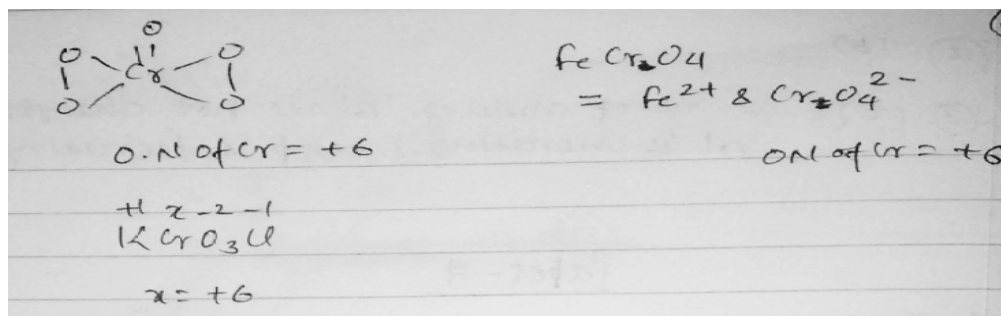 O
O Cr O
O O
O.N of Cr = +6
+1 x -2 -1
K Cr O3 Cl
x = +6
Fe Cr2O4
= Fe2+ & Cr2O4 2-
ON of Cr = +6